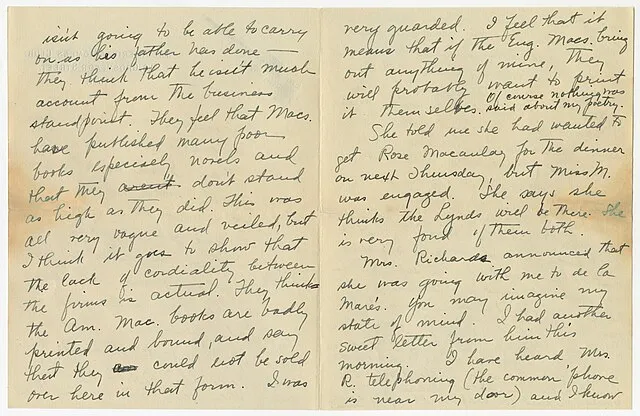 isn't going to be able to carry
on as his father has done —
they think that he isn't much
account from the business
standpoint. They feel that Macs.
have published many poor
books especially novels and
that they aren't don't stand
as high as they did. This was
all very vague and veiled, but
I think it goes to show that
the lack of cordiality between
the firms is actual. They think
the Am. Mac. books are badly
printed and bound, and say
that they could not be sold
over here in that form. I was
very guarded. I feel that it
means that if the Eng. Macs. bring
out anything of mine, they
will probably want to print
it themselves. Of course nothing was
said about my poetry.
She told me she had wanted to
get Rose Macaulay for the dinner
on next Thursday, but Miss M.
was engaged. She says she
thinks the Lynds will be there. She
is very fond of them both.
Mrs. Richards announced that
she was going with me to de la
Mare's. You may imagine my
state of mind. I had another
sweet letter from him this
morning. I have heard Mrs.
R. telephoning (the common 'phone
is near my door) and I know